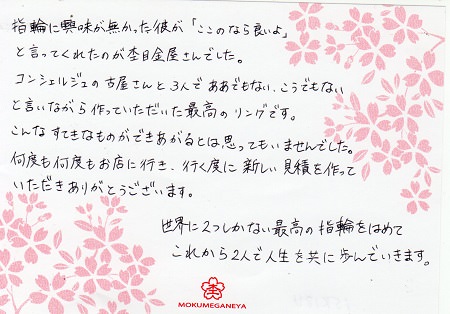 指輪に興味が無かった彼が「ここのなら良いよ」
と言ってくれたのが杢目金屋さんでした。
コンシェルジュの古屋さんと3人でああでもない、こうでもない
と言いながら作っていただいた最高のリングです。
こんなすてきなものができあがるとは思ってもいませんでした。
何度も何度もお店に行き、行く度に新しい見積を作って
いただきありがとうございます。
世界に2つしかない最高の指輪をはめて
これから2人で人生を共に歩んでいきます。
MOKUMEGANEYA